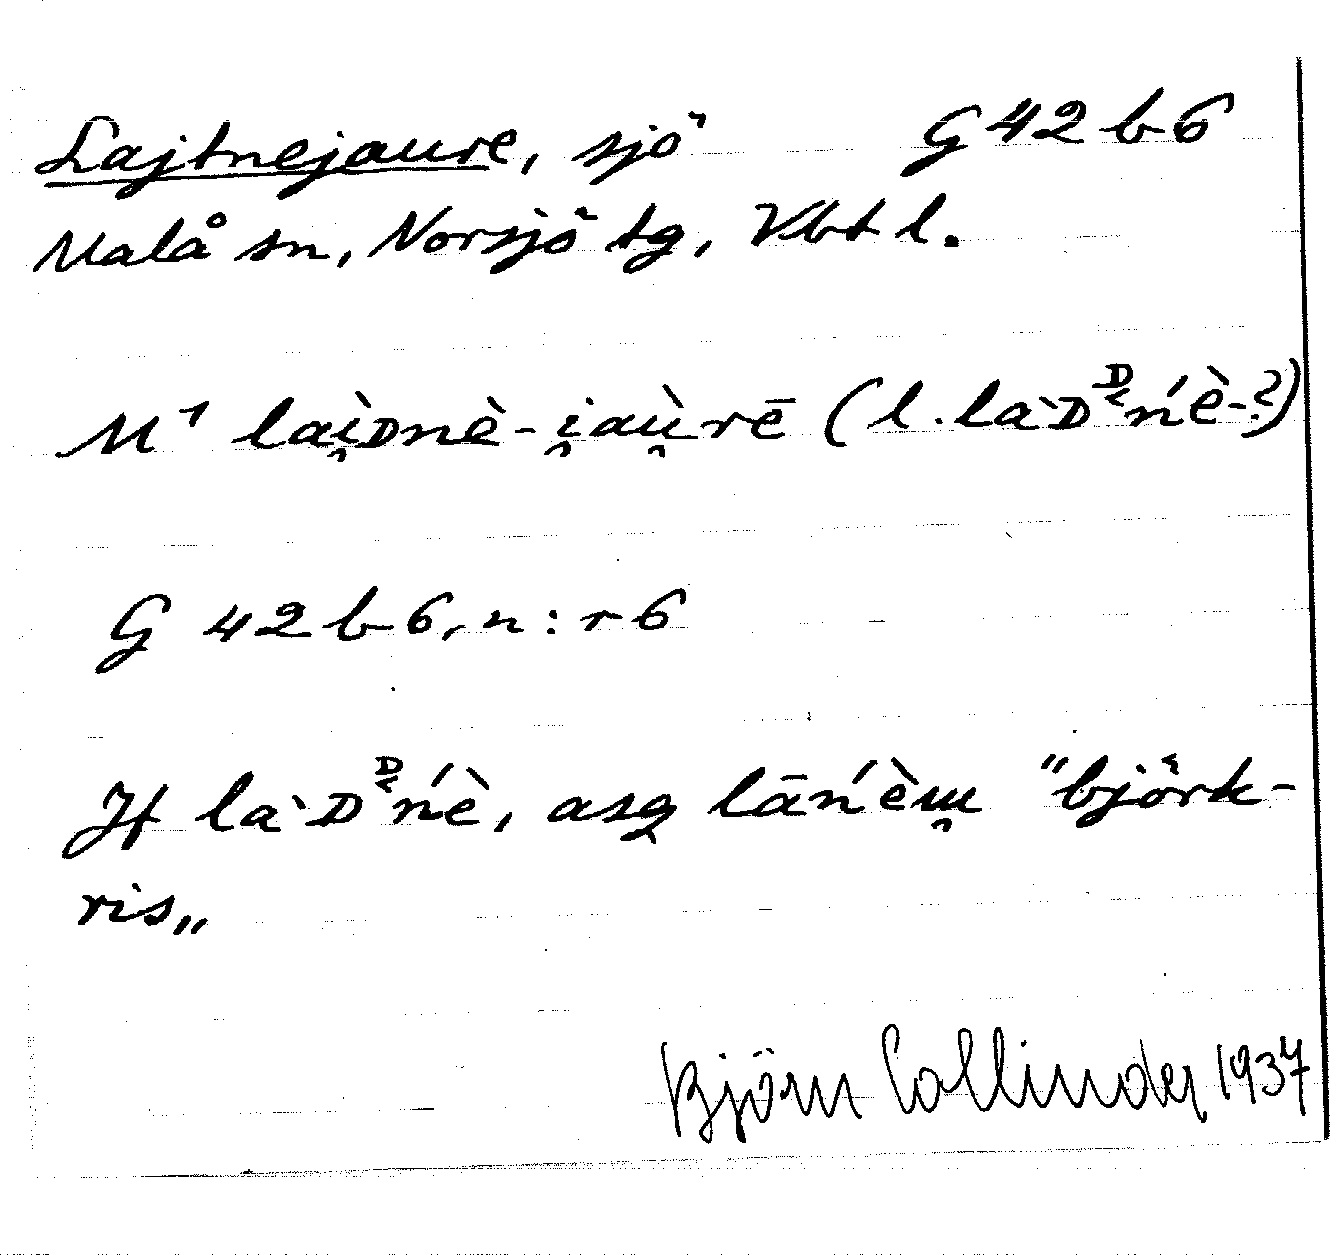 Lajtnejaure, sjö G 42 b 6
Malå sn, Norsjö tg, Vbt l.
M¹ laì̯ᴅnè-i̯aù̯rē (l. la`ᴅᴰńè-?)
G 42 b 6, n:r 6
H la`ᴅᴰńè, asg lāńèɯ̯ "björk-
ris„
Björn Collinder 1937